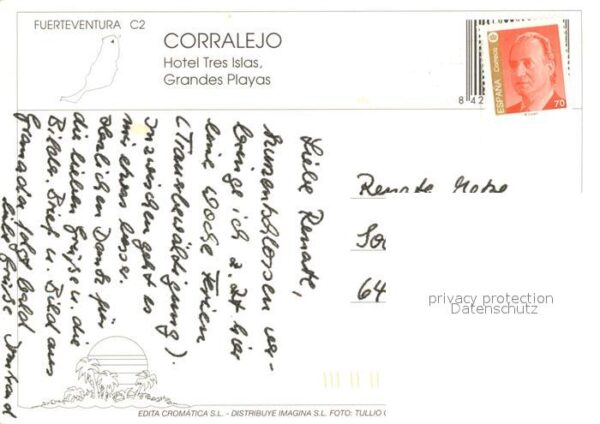 FUERTEVENTURA C2
CORRALEJO
Hotel Tres Islas,
Grandes Playas
ESPAÑA
Correos
70
842
Liebe Renate,
kurzentschlossen ver-
bringe ich z. Zt. hier
eine Woche Ferien
Inzwischen geht es
mir etwas besser.
Herzlichen Dank für
die lieben Grüße u. die
Bilder. Brief u. Bild aus
Granada folgt bald
Liebe Grüße
Renate
64
privacy protection
Datenschutz
EDITA CROMÁTICA S.L. - DISTRIBUYE IMAGINA S.L. FOTO: TULLIO